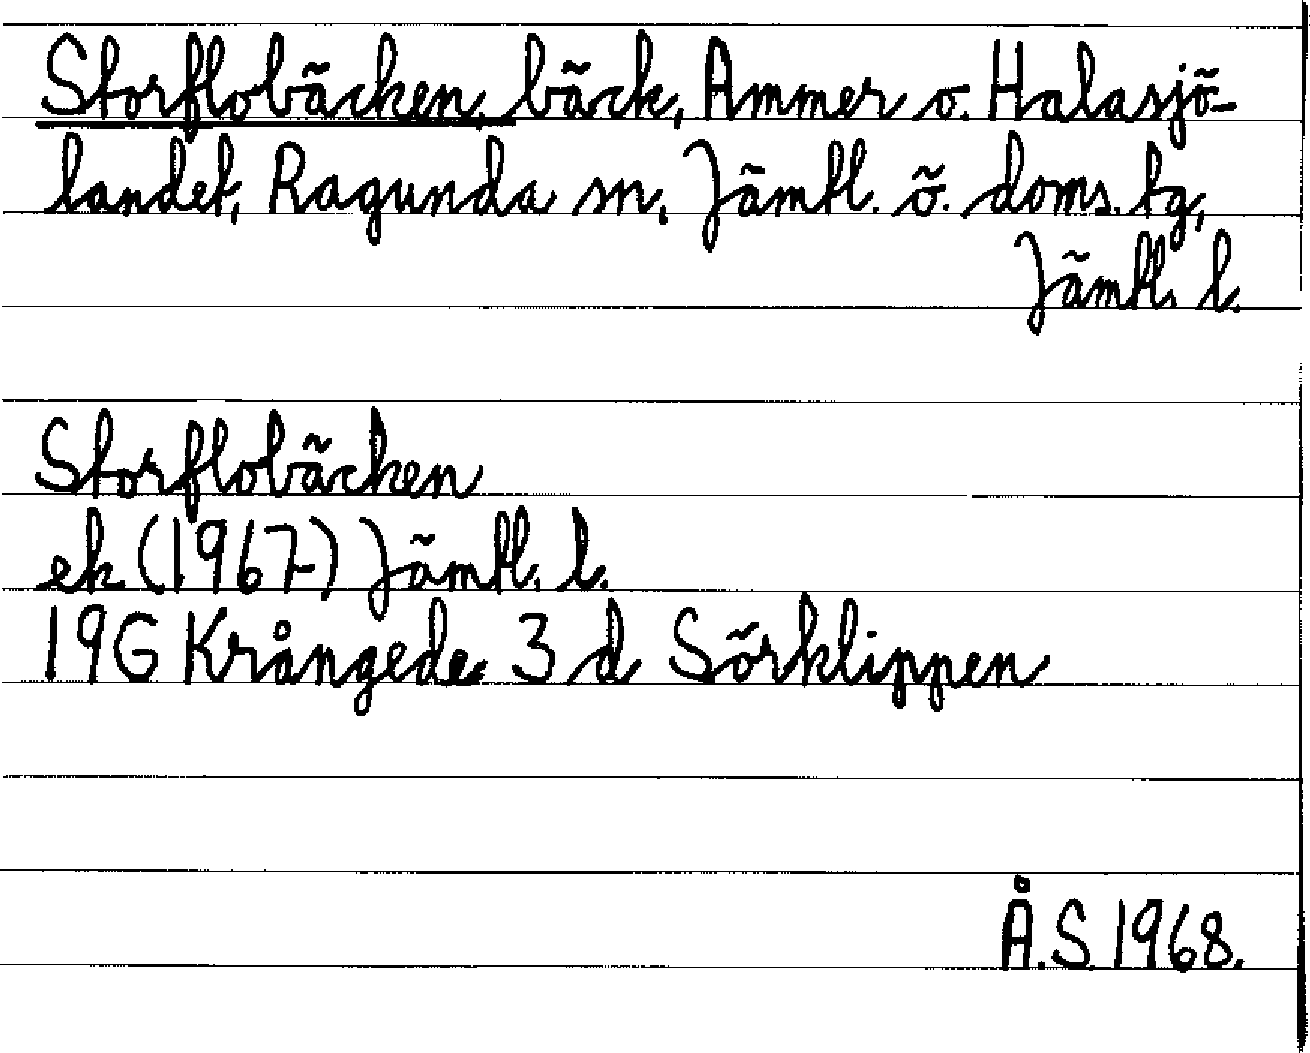 Storflobäcken, bäck, Ammer o. Halasjö-
landet, Ragunda sn. Jämtl. ö. doms. tg,
Jämtl. l.
Storflobäcken
ek (1967) Jämtl. l.
19G Krångede 3 d Sörklippen
Å.S. 1968.